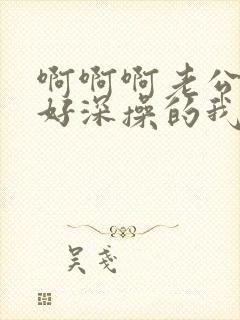 啊啊啊老公
好深操的我
吴戋